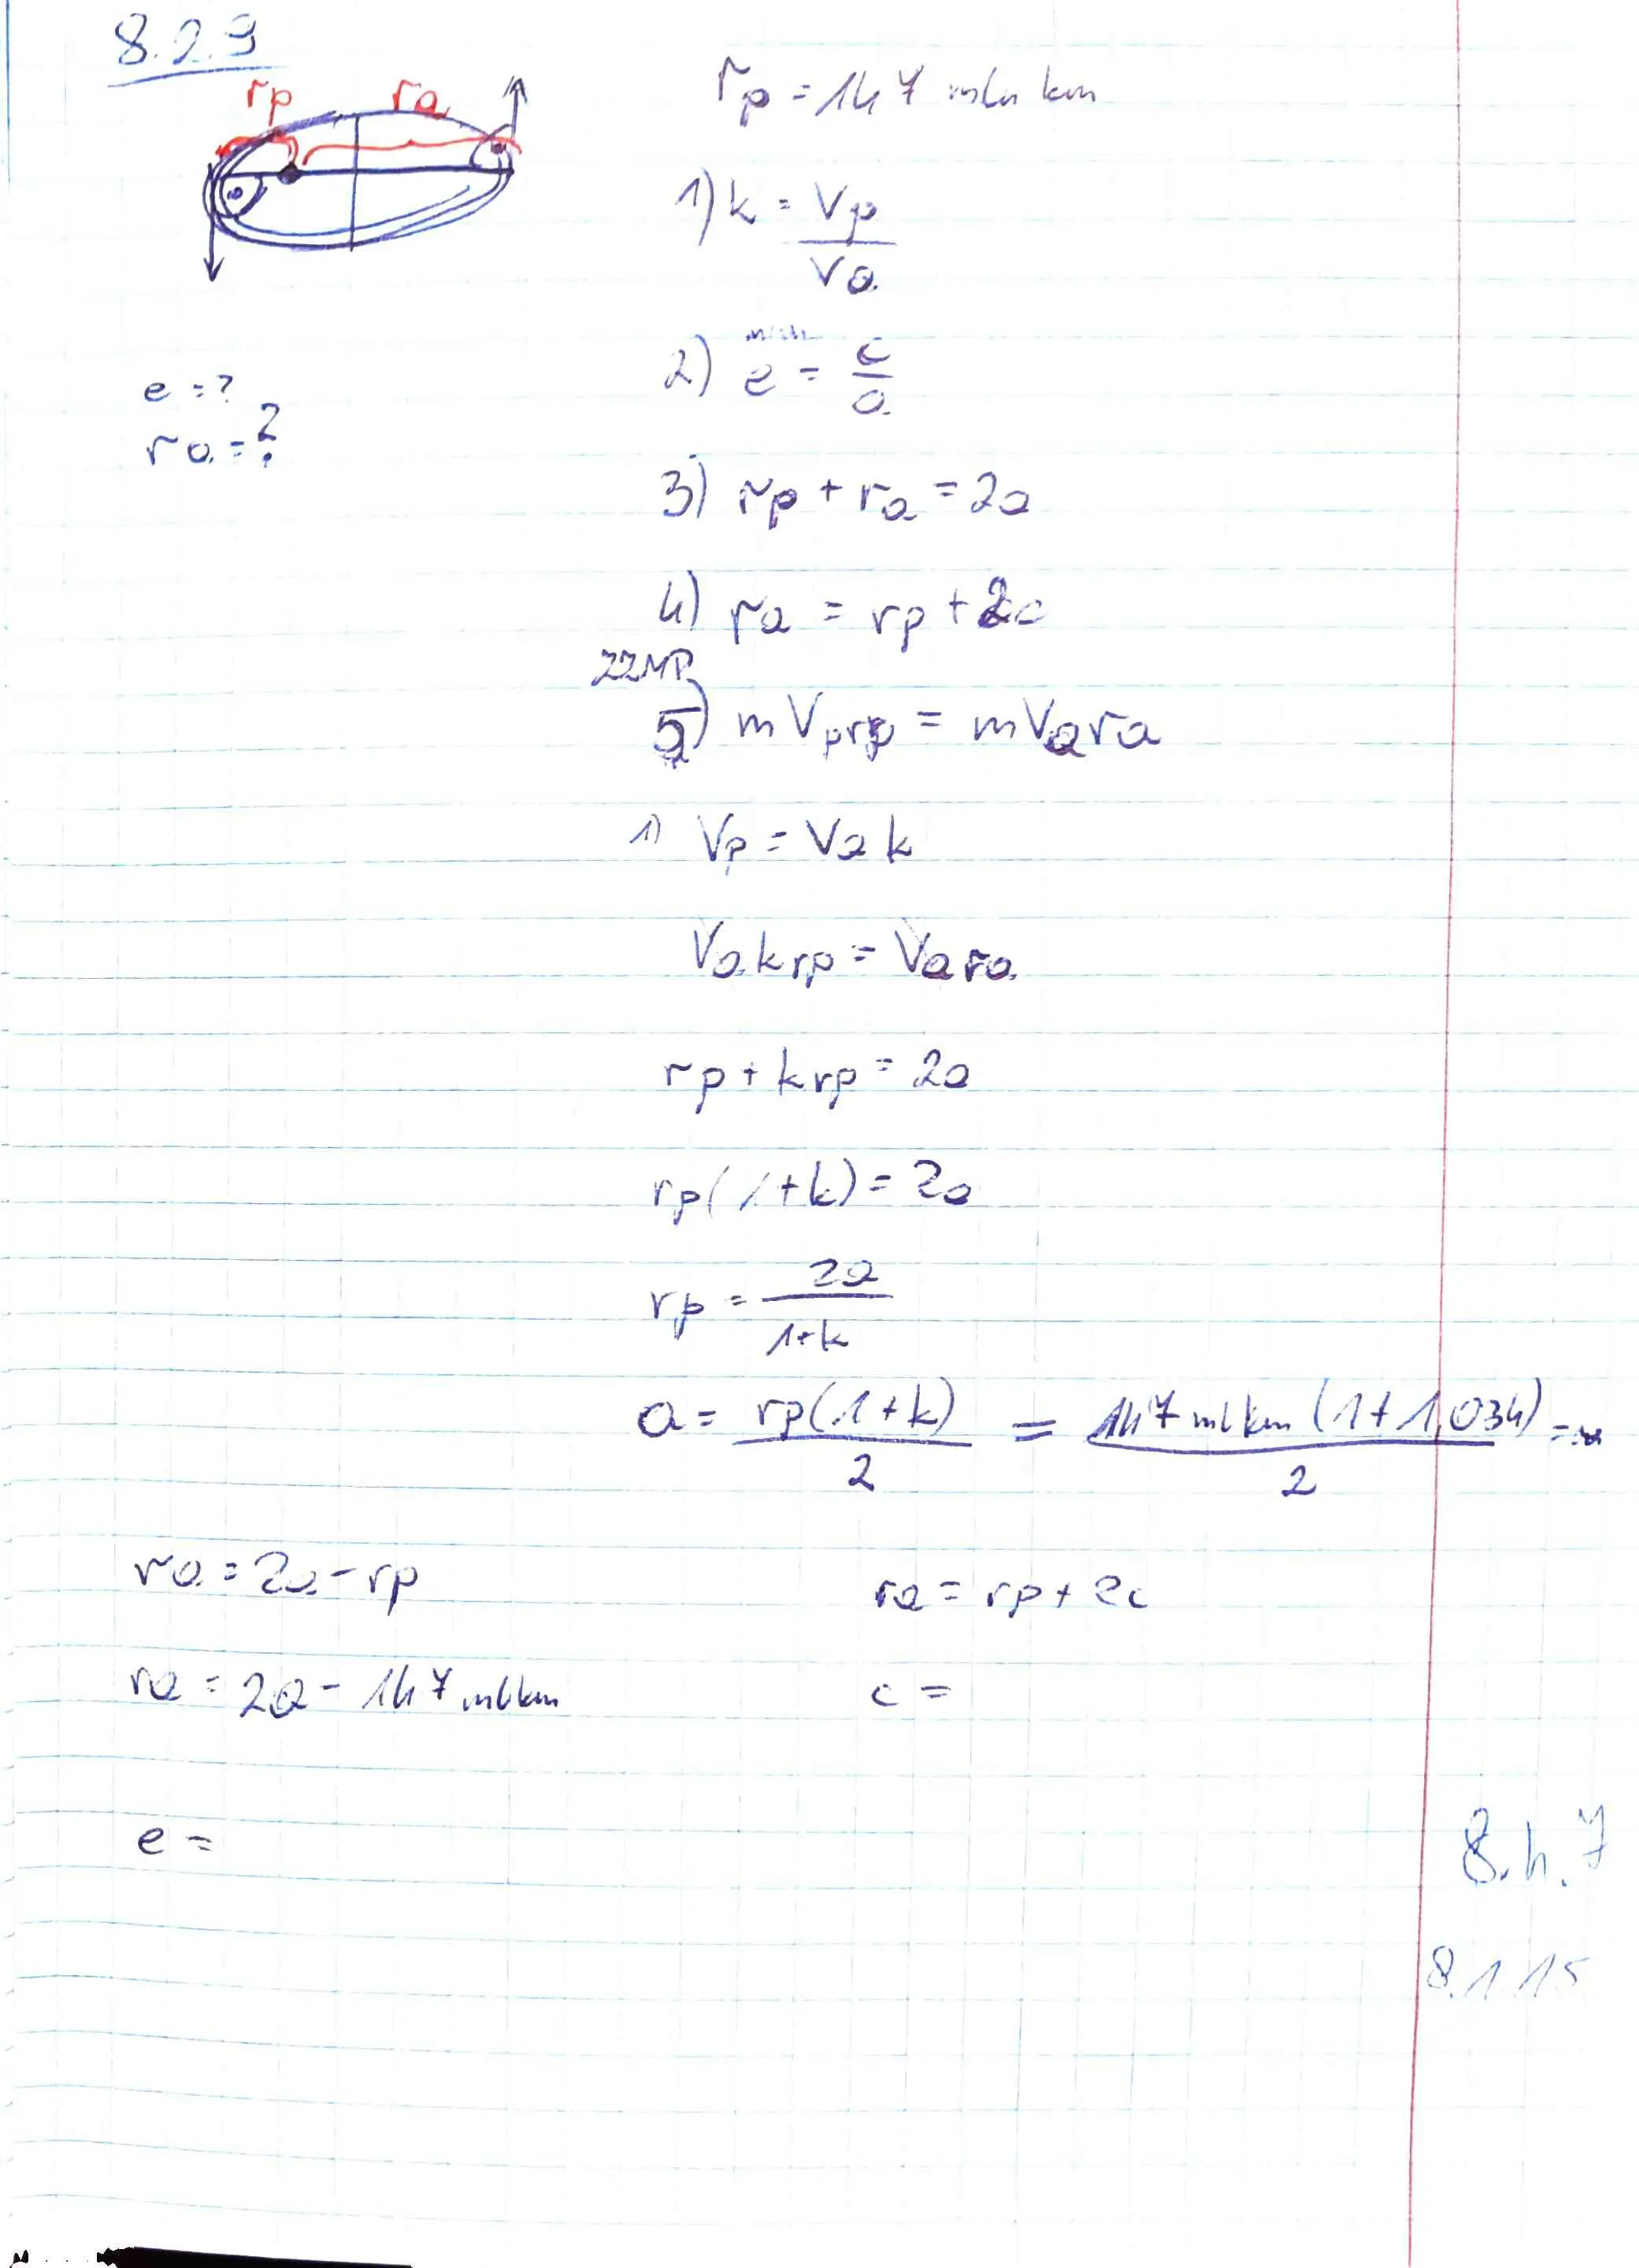 8.2.9
rp ra
rp = 147 mln km
1) k = Vp / Va
2) e = c / a
e = ?
ra = ?
3) rp + ra = 2a
4) ra = rp + 2c
ZZMP
5) m Vp rp = m Va ra
1) Vp = Va k
Va k rp = Va ra
rp + k rp = 2a
rp (1 + k) = 2a
rp = 2a / 1+k
a = rp(1+k) / 2 = 147 ml km (1 + 1,034) / 2 =
ra = 2a - rp
ra = rp + 2c
ra = 2a - 147 ml km
c =
e =
8.4.7
8.1.15